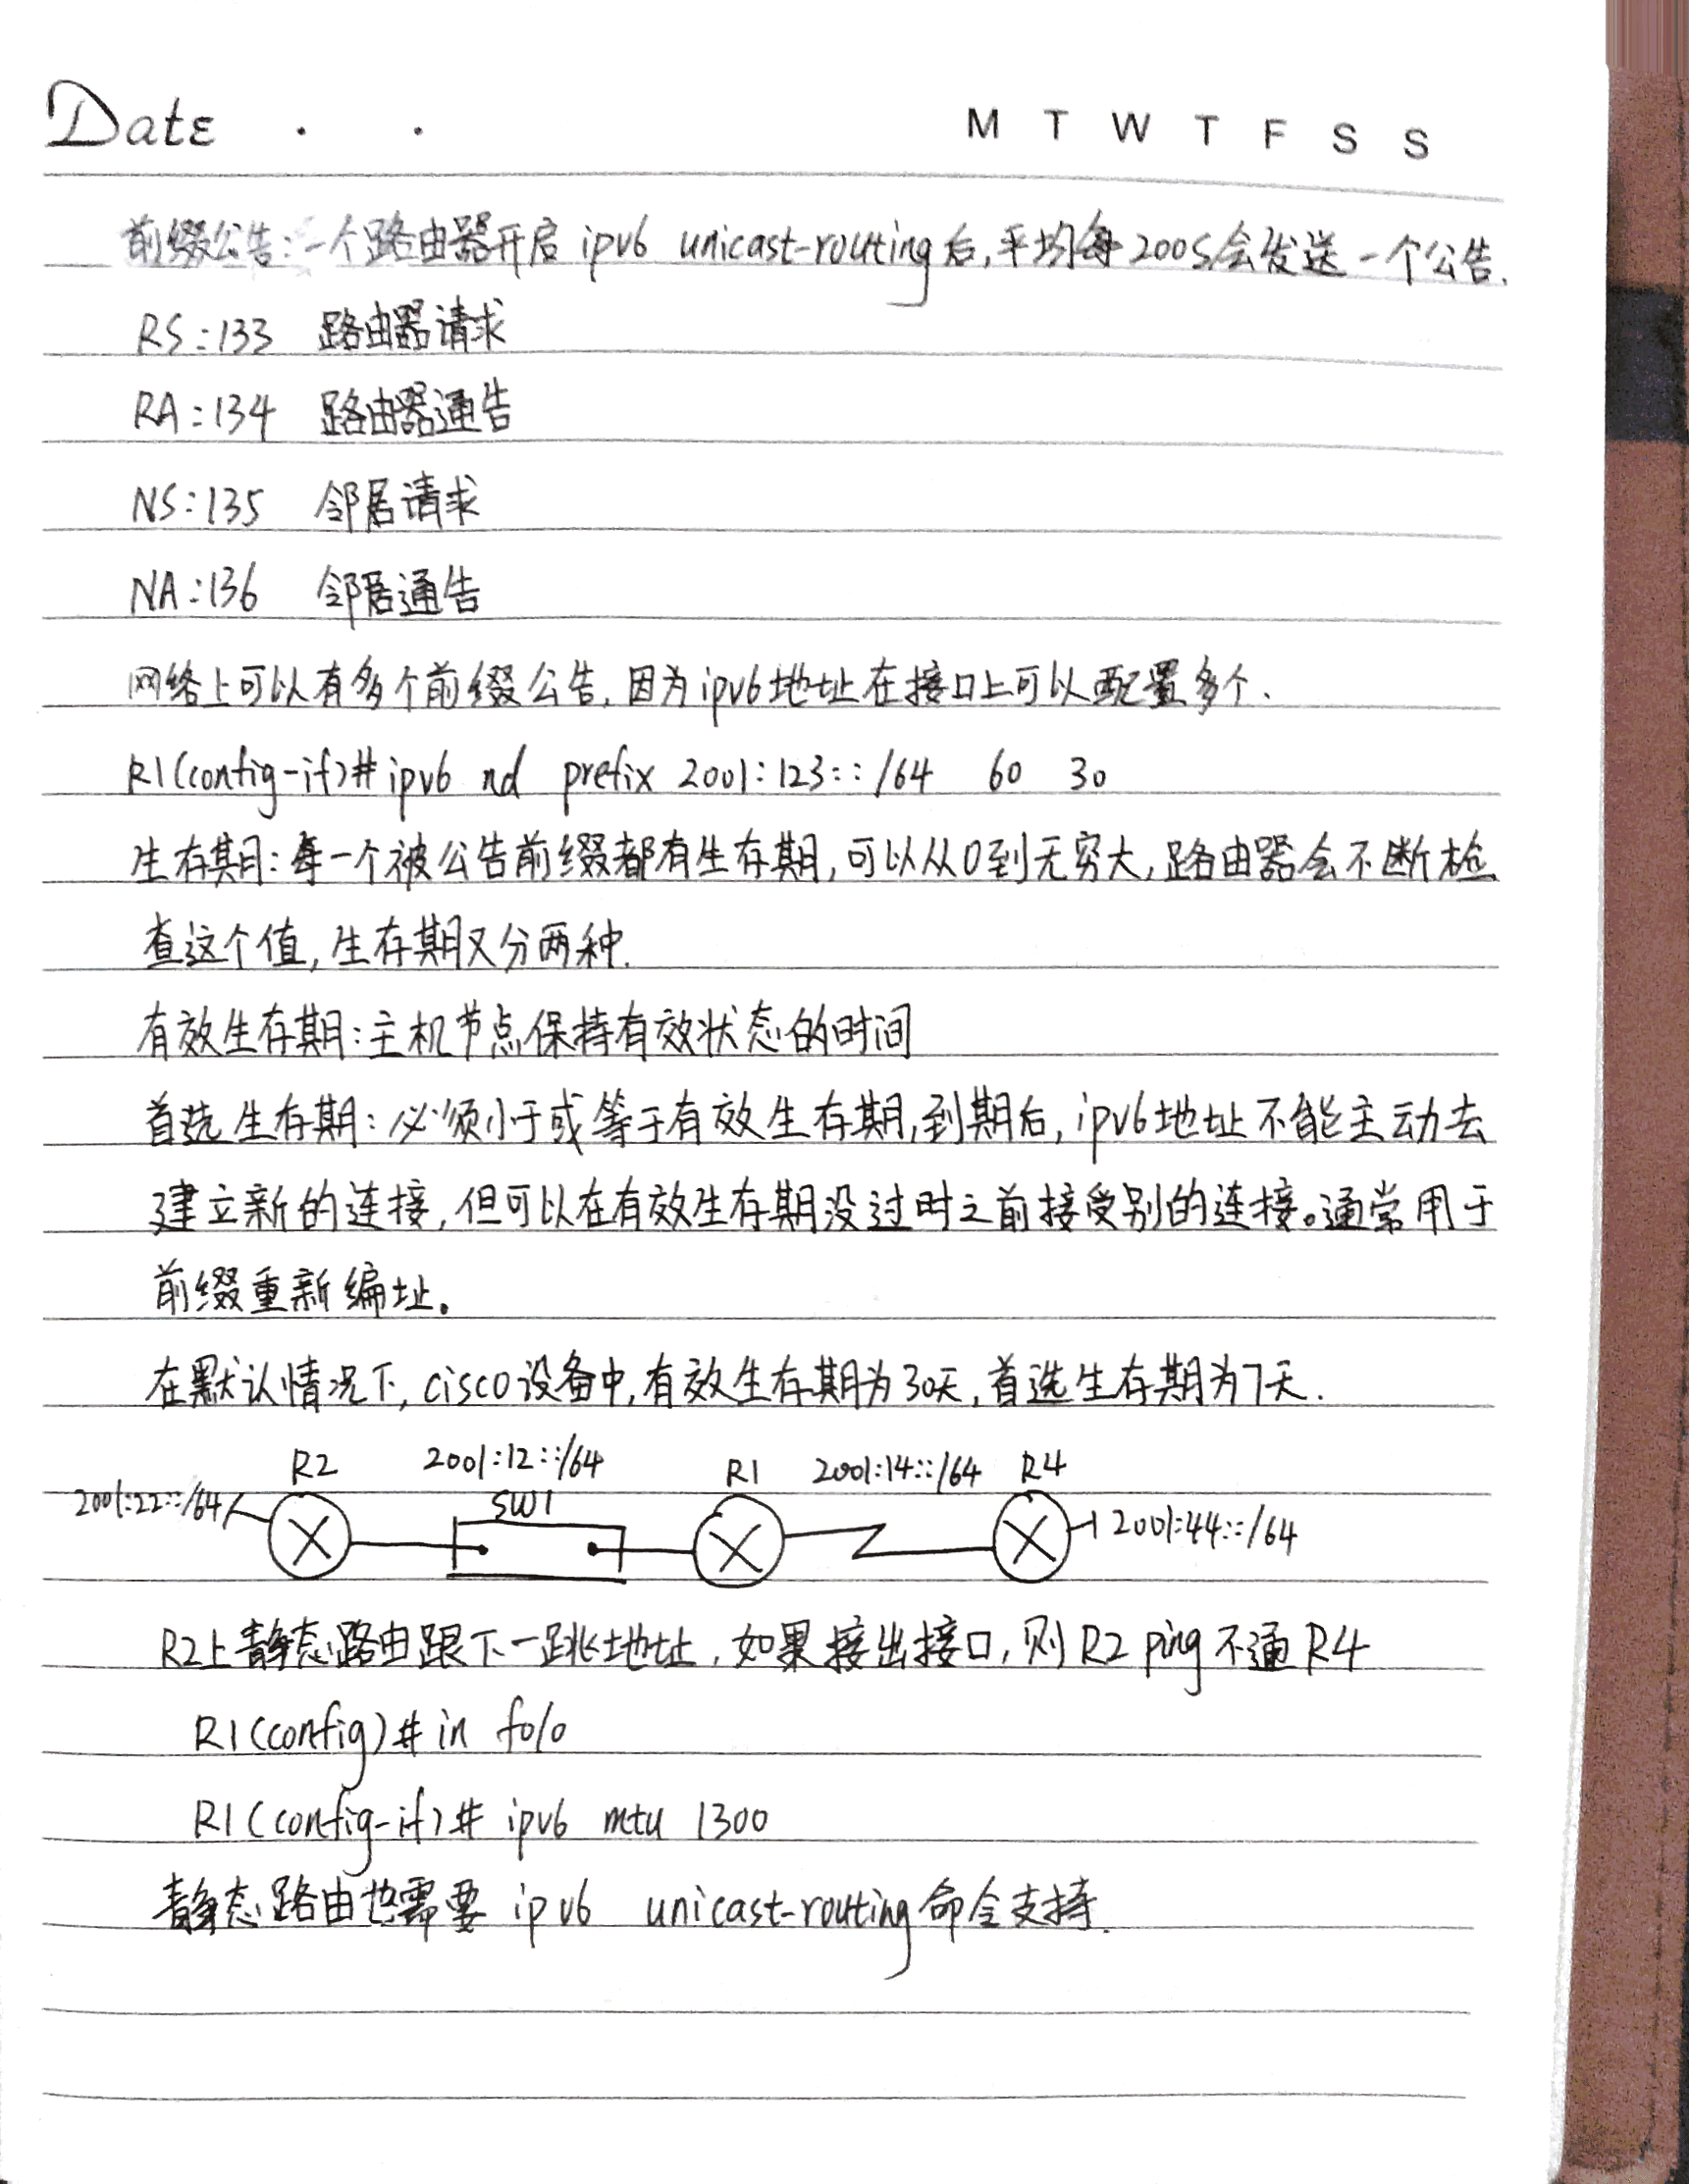 Date . .
M T W T F S S
前缀公告:一个路由器开启 ipv6 unicast-routing后,平均每200S会发送一个公告.
RS:133 路由器请求
RA:134 路由器通告
NS:135 邻居请求
NA:136 邻居通告
网络上可以有多个前缀公告,因为ipv6地址在接口上可以配置多个.
R1(config-if)# ipv6 nd prefix 2001:123::/64 60 30
生存期:每一个被公告前缀都有生存期,可以从0到无穷大,路由器会不断检
查这个值,生存期又分两种.
有效生存期:主机节点保持有效状态的时间
首选生存期:必须小于或等于有效生存期,到期后,ipv6地址不能主动去
建立新的连接,但可以在有效生存期没过时之前接受别的连接。通常用于
前缀重新编址。
在默认情况下,cisco设备中,有效生存期为30天,首选生存期为7天.
R2 2001:12::/64 R1 2001:14::/64 R4
2001:22::/64 SW1 2001:44::/64
R2上静态路由跟下一跳地址,如果接出接口,则R2 ping不通R4
R1(config)# in f0/0
R1(config-if)# ipv6 mtu 1300
静态路由也需要 ipv6 unicast-routing命令支持.